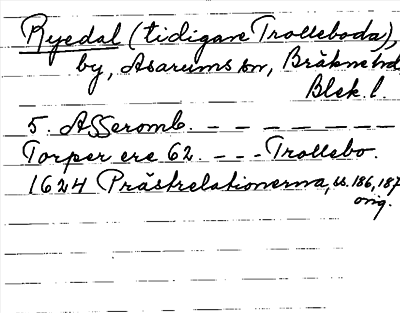 Ryedal (tidigare Trolleboda),
by, Asarums sn, Bräkne hd
Blek. l.
5. Asseromb. - - - - - -
Torper ere 62. - - - Trollebo.
1624 Prästrelationerna, ss. 186, 187
orig.